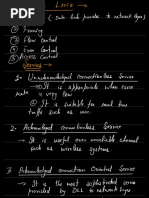 ( Data link provides to network layer)
① Framing
② Flow Control
③ Error Control
④ Access Control
Services →
1- Unacknowledged connectionless Service
→ It is appropriate when error
is very low
→ It is suitable for real time
traffic such as voice.
2- Acknowledged connectionless Service
→ It is useful over unreliable channel
such as wireless systems
3 Acknowledged connection Oriented Service
→ It is the most sophisticated service
provided by DLL to network layer